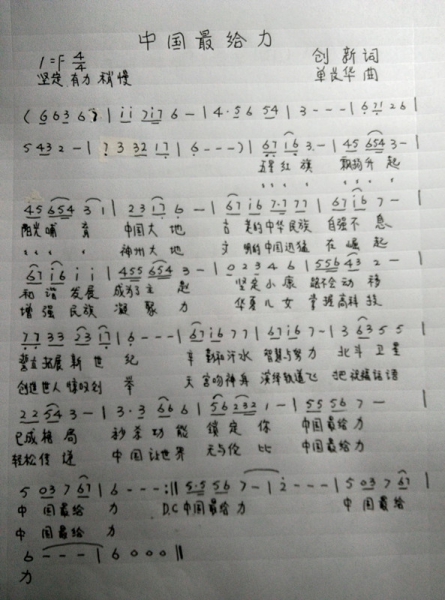 中国最给力
1=F 4/4 创新词
坚定 有力 稍慢 单长华 曲
( 6 6 3 6 7 | i i 7 i 7 6 - | 4 · 5 6 5 4 | 3 - - - | 6 7 1 2 6 |
5 4 3 2 - | 7 3 3 2 1 7 | 6 - - - ) | 6 7 i 6 3 - | 4 5 6 5 4 3 - |
五星红旗 升起
4 5 6 5 4 3 1 | 2 3 1 7 6 - | 6 7 i 6 7 · 7 7 7 | 6 7 i 6 7 - |
阳光哺育 中国大地 古老的中华民族 自强不息
神州大地 文明的中国 在崛起
6 7 i 6 i i | 4 5 5 6 5 4 3 - | 0 2 3 4 6 | 5 5 6 4 3 2 - |
和谐发展 起 坚定小康 路不会动移
增强民族 凝聚力 华夏儿女 掌握高科技
7 7 3 3 2 3 1 7 | 6 - - - | 6 7 i 6 7 7 | 6 7 i 6 7 - | 3 6 3 5 5 |
誓言拓展新世纪 辛勤和汗水 智慧与努力 北斗卫星
创造世人惊叹创举 天宫
2 2 5 4 3 - | 3 · 3 6 6 6 | 5 6 2 3 2 1 - | 5 5 5 6 7 - |
已成格局 秒杀功能 锁定你 中国最给力
轻松传递 中国让世界 无与伦比 中国最给力
5 0 3 7 6 7 | 6 - - - :‖ 5 · 5 5 6 7 - | 2 - - - | 5 0 3 7 6 7 |
中国最给力 D.C 中国最给力 中国最给
中国最给力
6 - - - | 6 0 0 0 ‖
力